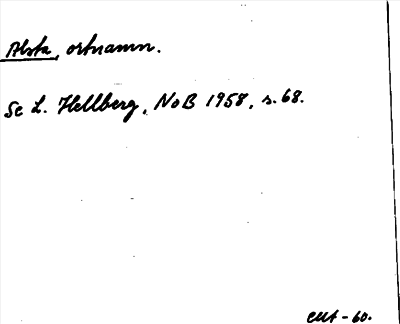 Alsta, ortnamn.
Se L. Hellberg, NoB 1958, s. 68.
CMA - 60.